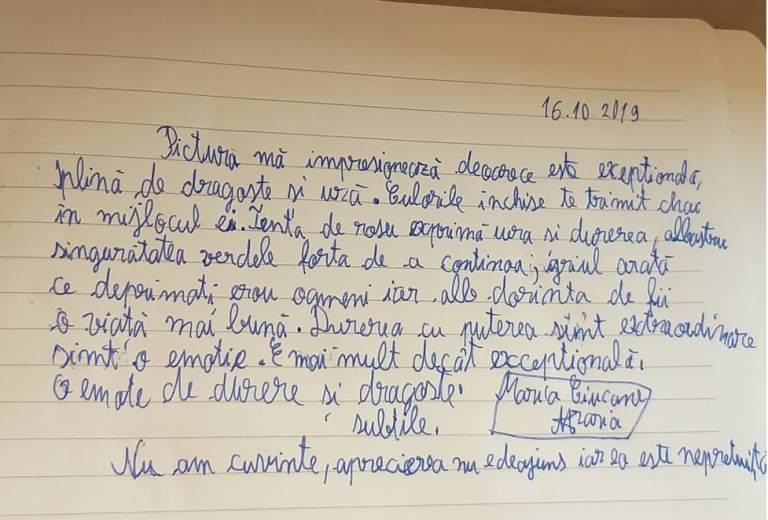 16.10.2019
Pictura mă impresionează deoarece este excepționala,
plină de dragoste si ură. Culorile inchise te trimit chac
în mijlocul ei. Tenta de rosu exprimă ura si durerea, albastru
singurătatea verdele forta de a continua, griul arată
ce deprimați erau oameni iar alb dorinta de
o viață mai bună. Durerea cu puterea simt extraordinare
simt o emotie. E mai mult decât excepțională.
O emote de durere si dragoste.
subtile.
Maria
Nu am cuvinte, aprecierea nu e deajuns iar ea este